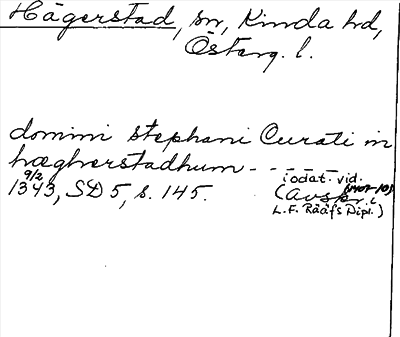 Hägerstad, sn, Kinda hd,
Österg. l.
domini stephani Curati in
hæghærstadhum - - - - -
9/2
1343, SD 5, s. 145.
i odat. vid.
(Avskr. i
L.F. Rääfs Dipl.)